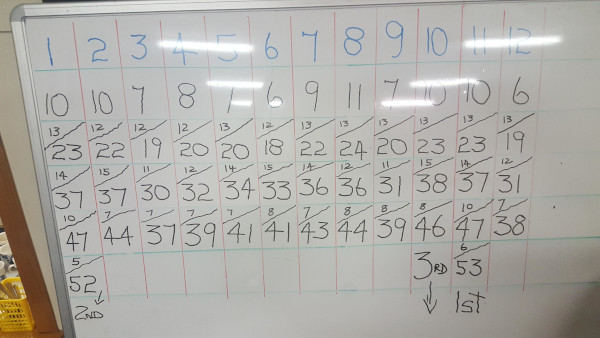 1 2 3 4 5 6 7 8 9 10 11 12
10 10 7 8 7 6 9 11 7 10 10 6
13 12 12 12 13 12 13 13 13 13 13 13
23 22 19 20 20 18 22 24 20 23 23 19
14 15 11 12 14 15 14 12 11 15 14 12
37 37 30 32 34 33 36 36 31 38 37 31
10 7 7 7 7 8 7 8 8 8 10 7
47 44 37 39 41 41 43 44 39 46 47 38
5 6
52 3RD 53
2ND 1st